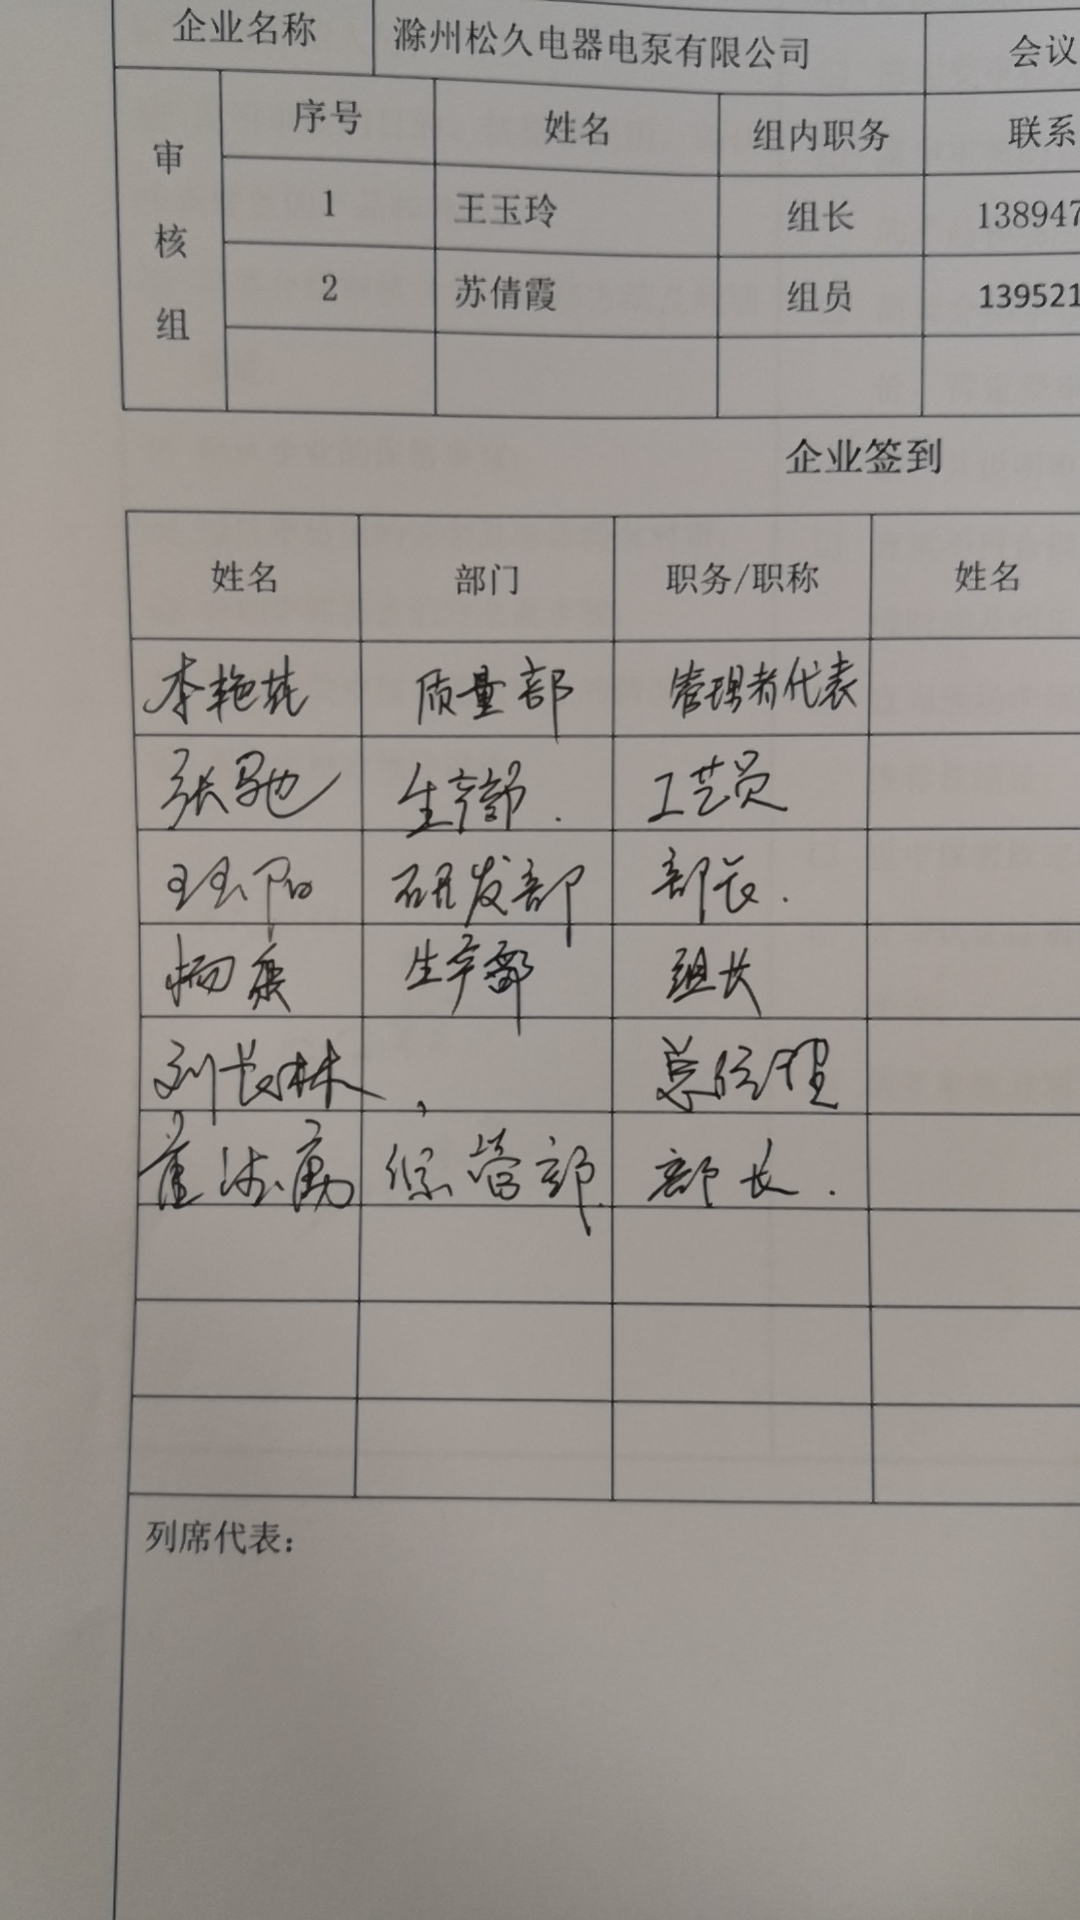 企业名称 滁州松久电器电泵有限公司 会议
审核组 序号 姓名 组内职务 联系
1 王玉玲 组长 138947
2 苏倩霞 组员 139521
企业签到
姓名 部门 职务/职称 姓名
李艳 质量部 管理者代表
张驰 生产部. 工艺员
王 阳 研发部 部长.
杨 生产部 组长
刘长林, 总经理
综管部. 部长.
列席代表：